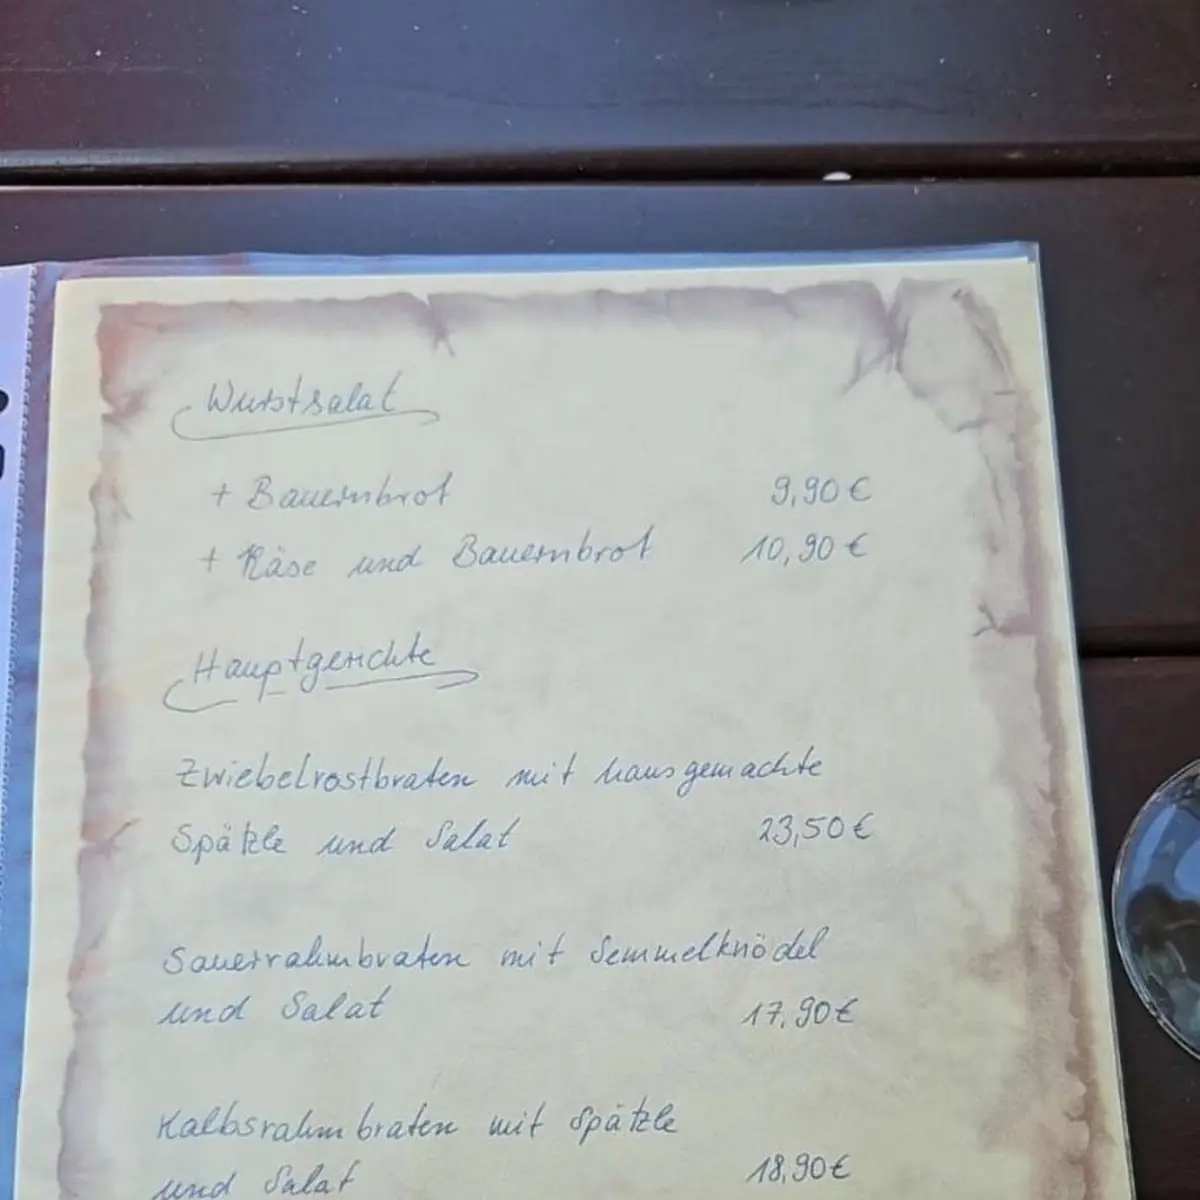 Wurstsalat
+ Bauernbrot 9,90 €
+ Käse und Bauernbrot 10,90 €
Hauptgerichte
Zwiebelrostbraten mit hausgemachte
Spätzle und Salat 23,50 €
Sauerrahmbraten mit Semmelknödel
und Salat 17,90 €
Kalbsrahmbraten mit Spätzle
und Salat 18,90 €